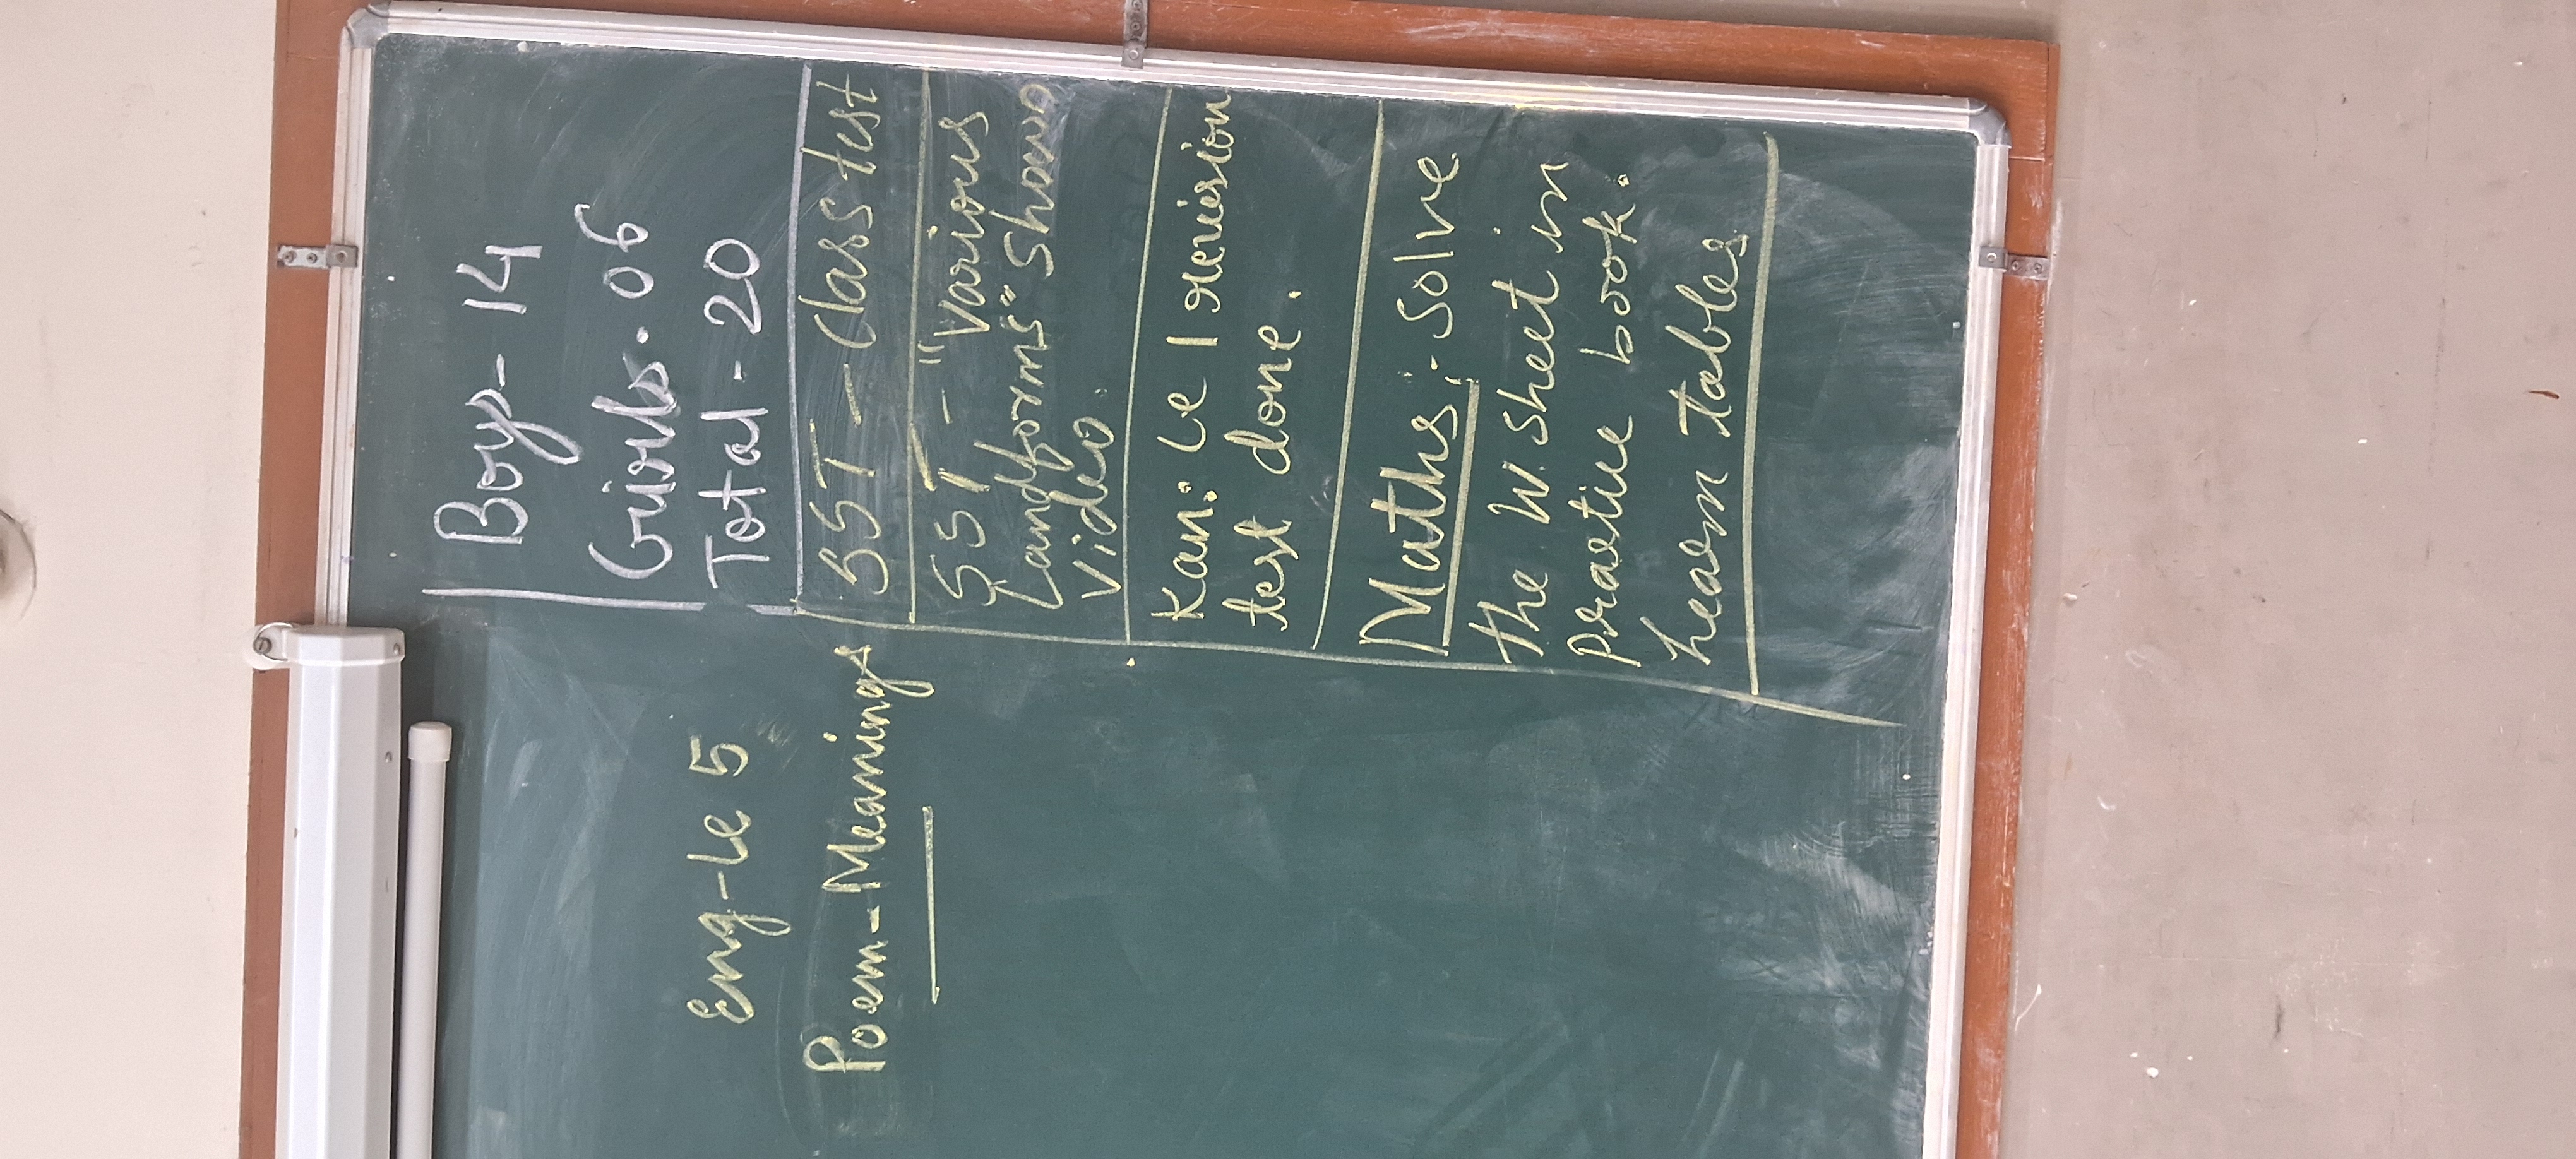 Boys- 14
Girls. 06
Total - 20
SST - Class test
SST - "Various
Landforms" shown
video.
Kan: Le 1 revision
test done.
Maths:- Solve
the W. sheet in
practice book.
Learn tables
Eng-Le 5
Poem-Meanings